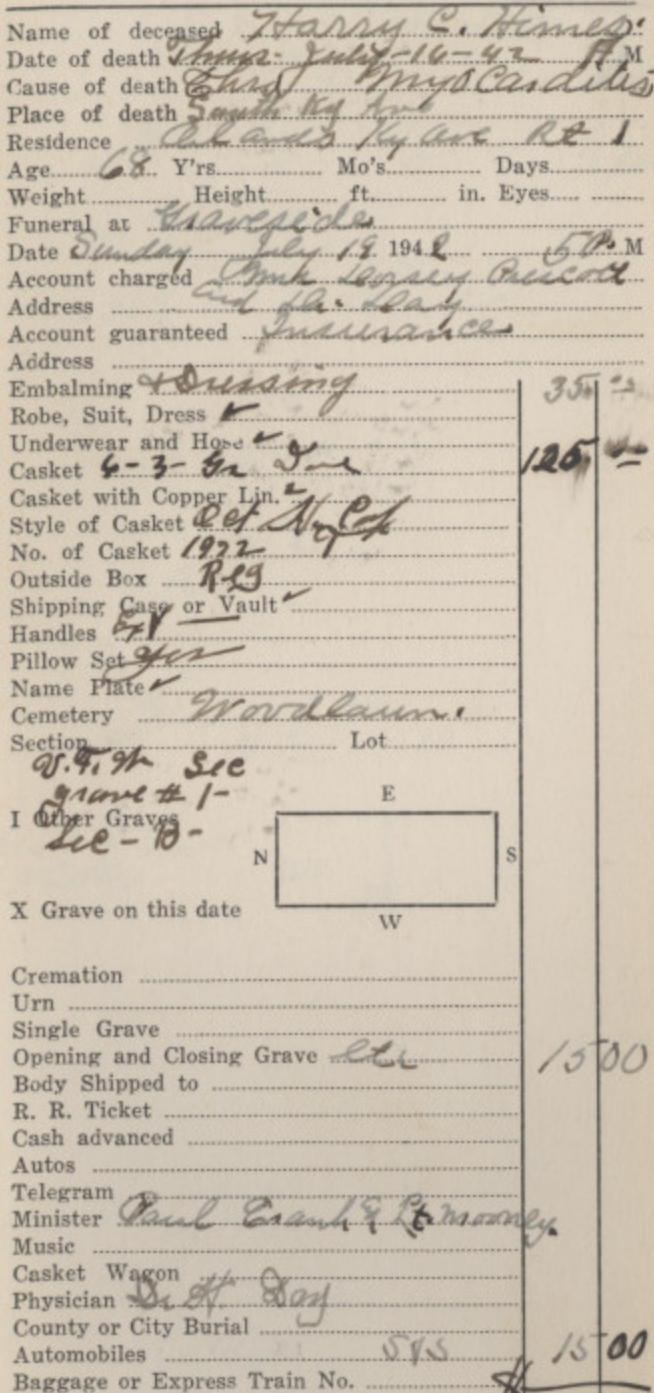 Name of deceased Harry C. Himes.
Date of death Thurs- July-16-42 A M
Cause of death Myocarditis
Place of death South Ky Ave
Residence Orlando Ky Ave Rt 1
Age 68 Y'rs. Mo's. Days
Weight Height ft. in. Eyes
Funeral at Graveside
Date Sunday July 19 1942 5 P. M
Account charged Dorsey Prescott
Address
Account guaranteed Insurance
Address
Embalming & Dressing 35.
Robe, Suit, Dress ✓
Underwear and Hose ✓
Casket 6-3- Gr 125
Casket with Copper Lin. ✓
Style of Casket Oct
No. of Casket 1922
Outside Box Reg
Shipping Case or Vault ✓
Handles
Pillow Set yes
Name Plate ✓
Cemetery Woodlawn.
Section Lot
V.F.W Sec
grave # 1-
I Other Graves
Sec - B -
E
N
S
W
X Grave on this date
Cremation
Urn
Single Grave
Opening and Closing Grave 15 00
Body Shipped to
R. R. Ticket
Cash advanced
Autos
Telegram
Minister Paul & Lt. Mooney.
Music
Casket Wagon
Physician Dr H Day
County or City Burial
Automobiles 15 00
Baggage or Express Train No.